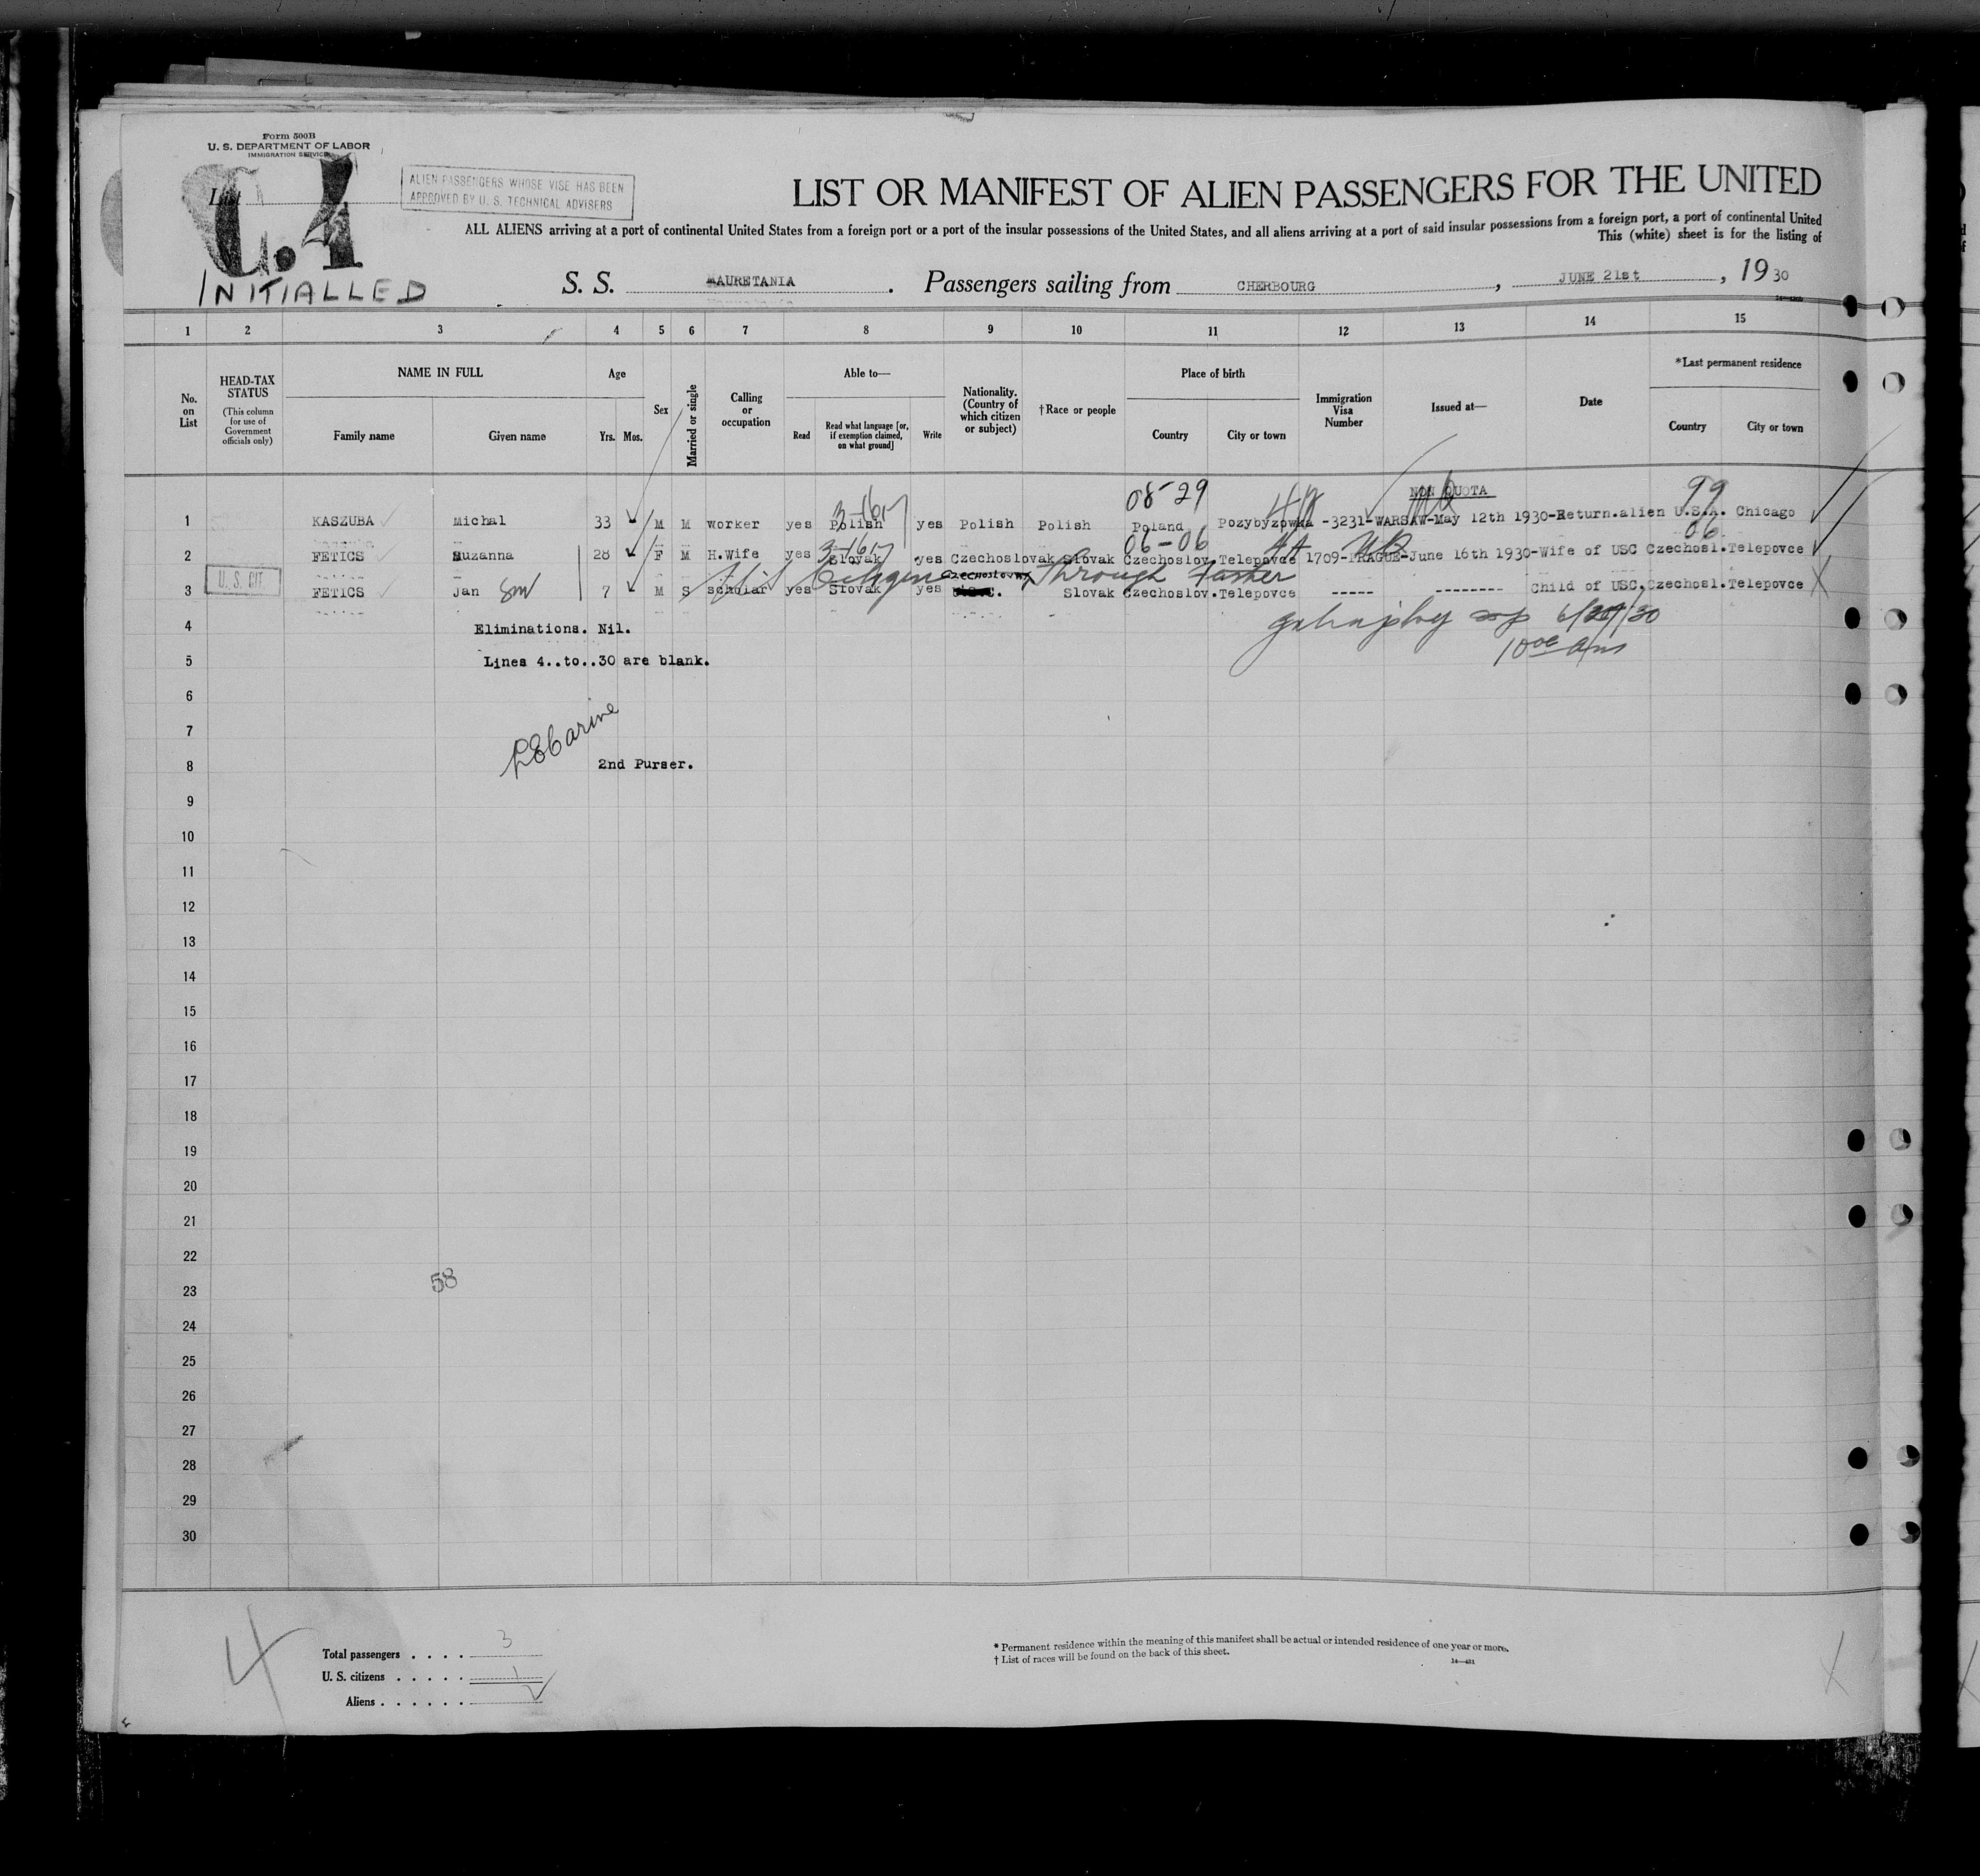 Form 500B
U. S. DEPARTMENT OF LABOR
IMMIGRATION SERVICE
List
ALIEN PASSENGERS WHOSE VISE HAS BEEN
APPROVED BY U. S. TECHNICAL ADVISERS
INITIALLED
LIST OR MANIFEST OF ALIEN PASSENGERS FOR THE UNITED
ALL ALIENS arriving at a port of continental United States from a foreign port or a port of the insular possessions of the United States, and all aliens arriving at a port of said insular possessions from a foreign port, a port of continental United
This (white) sheet is for the listing of
S. S. MAURETANIA . Passengers sailing from CHERBOURG , JUNE 21st , 19 30
1 2 3 4 5 6 7 8 9 10 11 12 13 14 15
No. on List
HEAD-TAX STATUS
(This column for use of Government officials only)
NAME IN FULL
Family name Given name
Age
Yrs. Mos.
Sex
Married or single
Calling or occupation
Able to—
Read
Read what language [or, if exemption claimed, on what ground]
Write
Nationality. (Country of which citizen or subject)
†Race or people
Place of birth
Country City or town
Immigration Visa Number
Issued at—
Date
*Last permanent residence
Country City or town
08-29 NON QUOTA 99
1 KASZUBA Michal 33 M M worker yes Polish yes Polish Polish Poland Pozybyzowka -3231-WARSAW-May 12th 1930-Return.alien U.S.A. Chicago
06-06 06
2 FETICS Suzanna 28 F M H.Wife yes Slovak yes Czechoslovak Slovak Czechoslov.Telepovce 1709-PRAGUE-June 16th 1930-Wife of USC Czechosl.Telepovce
U. S. CIT.
Through Father
3 FETICS Jan 7 M S scholar yes Slovak yes Slovak Czechoslov.Telepovce ----- -------- Child of USC.Czechosl.Telepovce
4 Eliminations. Nil.
5 Lines 4..to..30 are blank.
6
7
8 2nd Purser.
9
10
11
12
13
14
15
16
17
18
19
20
21
22
23
58
24
25
26
27
28
29
30
4
Total passengers . . . . 3
U. S. citizens . . . . . 1
Aliens . . . . . . 2
* Permanent residence within the meaning of this manifest shall be actual or intended residence of one year or more.
† List of races will be found on the back of this sheet.